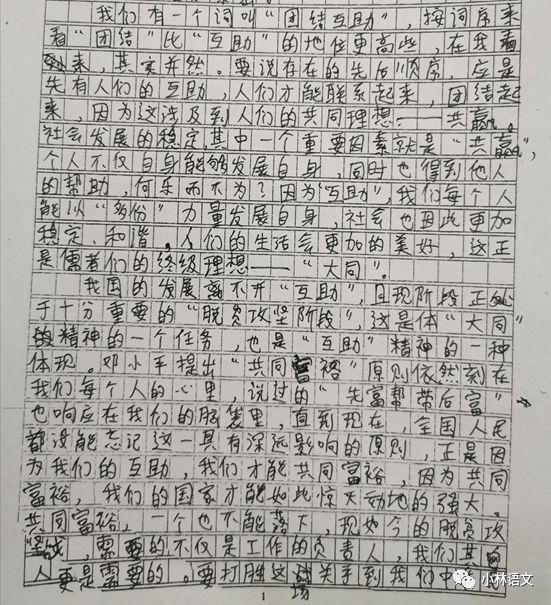 我们有一个词叫“团结互助”，按词序来
看“团结”比“互助”的地位更高些，在我看
来，其实并然。要说存在的先后顺序，应是
先有人们的互助，人们才能联系起来，团结起
来，因为这涉及到人们的共同理想——共赢。
社会发展的稳定，其中一个重要因素就是“共赢”，
个人不仅自身能够发展自身，同时也得到他人
的帮助，何乐而不为？因为“互助”，我们每个人
能以“多份”力量发展自身，社会也因此更加
稳定、和谐，人们的生活会更加的美好，这正
是儒者们的终级理想——“大同”。
我国的发展离不开“互助”，且现阶段正处
于十分重要的“脱贫攻坚阶段”，这是体“大同”
的精神的一个任务，也是“互助”精神的一种
体现。邓小平提出“共同富裕”原则依然刻在
我们每个人的心里，说过的“先富帮带后富”
也响应在我们的脑袋里，直到现在，全国人民
都没能忘记这一具有深远影响的原则，正是因
为我们的互助，我们才能共同富裕，因为共同
富裕，我们的国家才能如此惊天动地的强大。
共同富裕，一个也不能落下，现如今的脱贫攻
坚战，需要的不仅是工作的负责人，我们其
人更是需要的。要打胜这场关手到我们中
1
小林语文